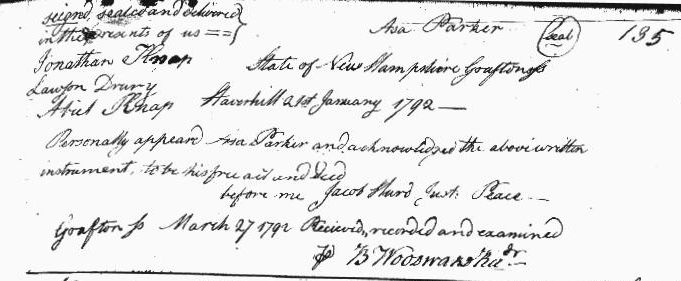 seigned, sealed and delivered
in the presents of us ==}
Asa Parker (seal) 135
Jonathan Knap State of New Hampshire Grafton ss
Lawson Drury
Abiel Knap Haverhill 21st January 1792 —
Personally appeared Asa Parker and acknowledged the above written
instrument, to be his free act and deed
before me Jacob Hurd Just: Peace —
Grafton ss March 27 1792 Recieved, recorded and examined
B Woodward